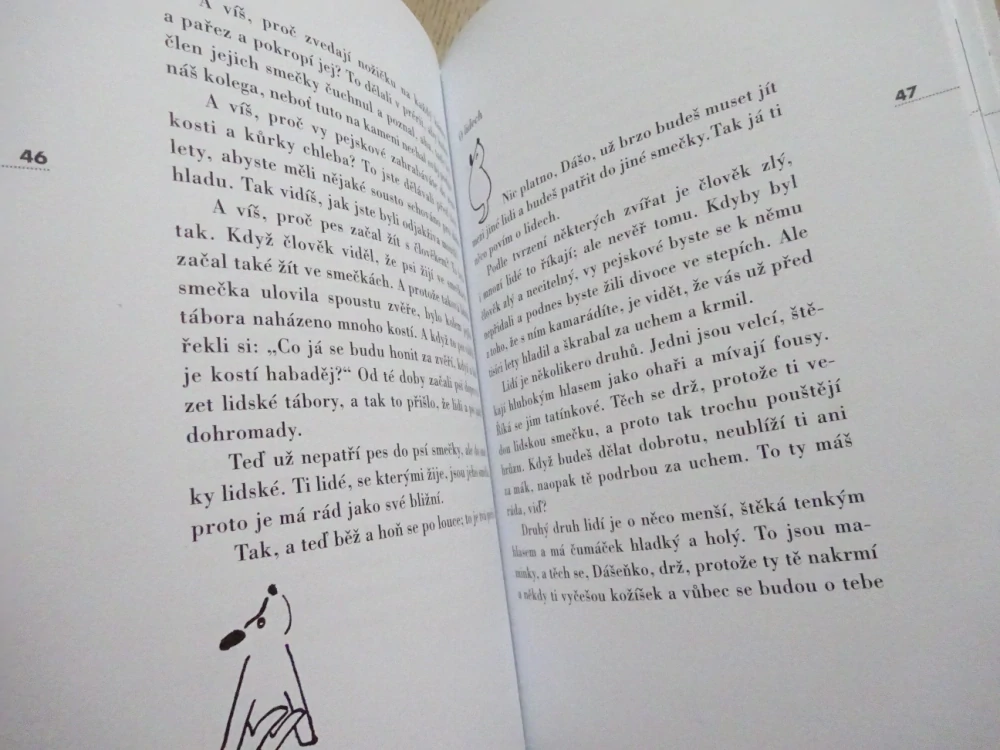 A víš, proč zvedají nožičku na
a pařez a pokropí jej? To dělali v
člen jejich smečky čuchnul a poznal,
náš kolega, neboť tuto na kameni nechal
A víš, proč vy pejskové zahrabáváte
kosti a kůrky chleba? To jste dělávali
lety, abyste měli nějaké sousto schováno
hladu. Tak vidíš, jak jste byli odjakživa
A víš, proč pes začal žít s člověkem? To
tak. Když člověk viděl, že psi žijí ve
začal také žít ve smečkách. A protože
smečka ulovila spoustu zvěře, bylo kolem
tábora naházeno mnoho kostí. A když to
řekli si: „Co já se budu honit za zvěří,
je kostí habaděj?“ Od té doby začali
zet lidské tábory, a tak to přišlo, že lidi a
dohromady.
Teď už nepatří pes do psí smečky, ale do
ky lidské. Ti lidé, se kterými žije, jsou jeho
proto je má rád jako své bližní.
Tak, a teď běž a hoň se po louce; to je
46
O lidech
47
Nic platno, Dášo, už brzo budeš muset jít
mezi jiné lidi a budeš patřit do jiné smečky. Tak já ti
něco povím o lidech.
Podle tvrzení některých zvířat je člověk zlý,
i mnozí lidé to říkají; ale nevěř tomu. Kdyby byl
člověk zlý a necitelný, vy pejskové byste se k němu
nepřidali a podnes byste žili divoce ve stepích. Ale
z toho, že s ním kamarádíte, je vidět, že vás už před
tisíci lety hladil a škrabal za uchem a krmil.
Lidí je několikero druhů. Jedni jsou velcí, ště-
kají hlubokým hlasem jako ohaři a mívají fousy.
Říká se jim tatínkové. Těch se drž, protože ti ve-
dou lidskou smečku, a proto tak trochu pouštějí
hrůzu. Když budeš dělat dobrotu, neublíží ti ani
za mák, naopak tě podrbou za uchem. To ty máš
ráda, viď?
Druhý druh lidí je o něco menší, štěká tenkým
hlasem a má čumáček hladký a holý. To jsou ma-
minky, a těch se, Dášeňko, drž, protože ty tě nakrmí
a někdy ti vyčešou kožíšek a vůbec se budou o tebe